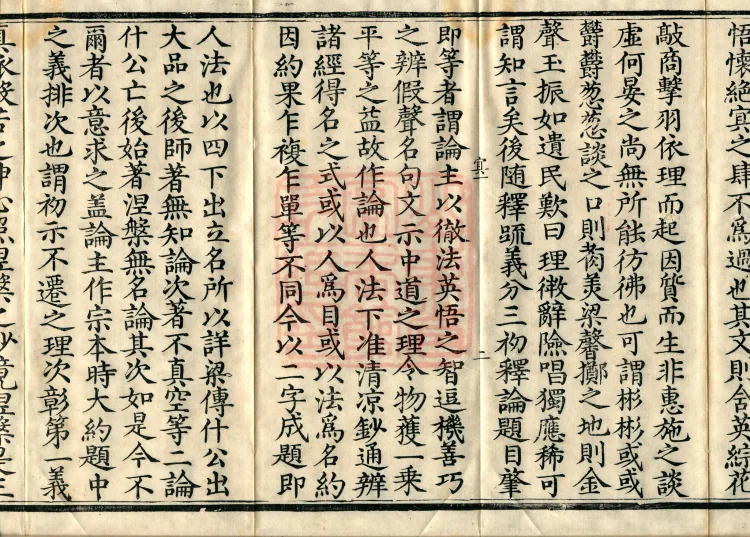 悟懷絕冥之肆不為過也其文則含英綜花
敲商擊羽依理而起因贊而生非惠施之談
虛何晏之尚無所能彷彿也可謂彬彬或或
欝欝葱葱談之口則芮美梁馨擲之地則金
聲玉振如遺民歎曰理微辭險唱獨應稀可
謂知言矣後随釋䟽義分三初釋論題目肇
宣二
二
即等者謂論主以徹法英悟之智逗機善巧
之辨假聲名句文示中道之理令物獲一乘
平等之益故作論也人法下准清凉鈔通辨
諸經得名之式或以人爲目或以法爲名約
因約果乍複乍單等不同今以二字成題即
人法也以四下出立名所以詳梁傳什公出
大品之後師著無知論次著不真空等二論
什公亡後始著涅槃無名論其次如是今不
爾者以意求之盖論主作宗本時大約題中
之義排次也謂初示不遷之理次彰第一義